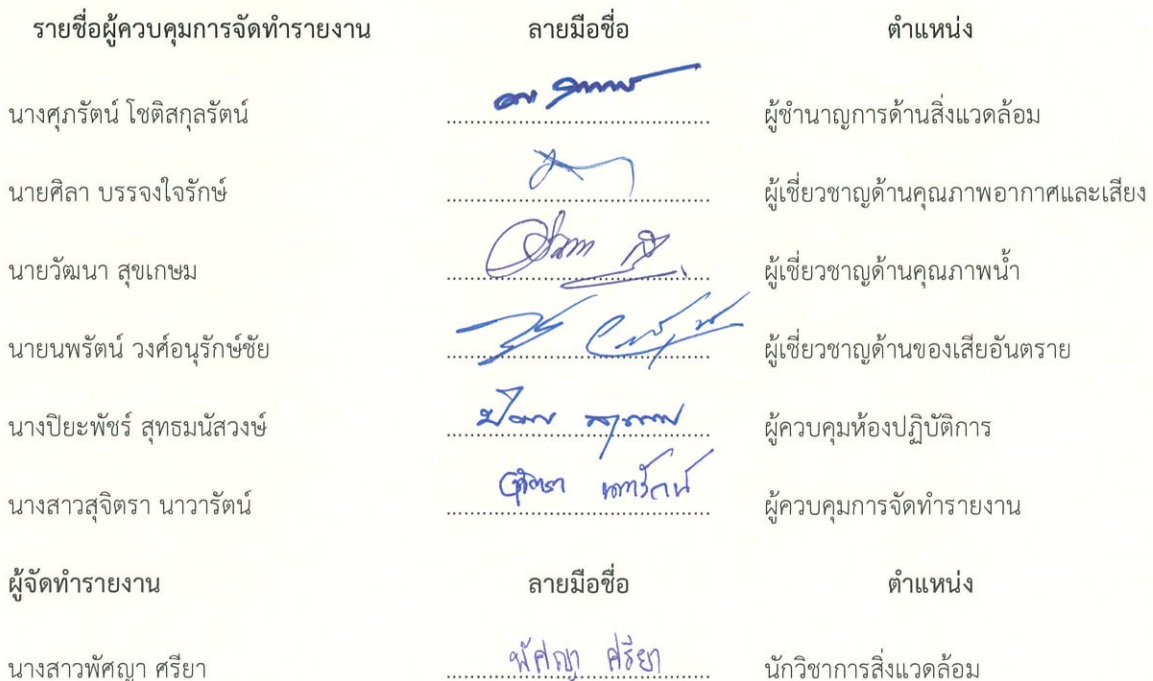 รายชื่อผู้ควบคุมการจัดทำรายงาน ลายมือชื่อ ตำแหน่ง
นางศุภรัตน์ โชติสกุลรัตน์ ผู้ชำนาญการด้านสิ่งแวดล้อม
นายศิลา บรรจงใจรักษ์ ผู้เชี่ยวชาญด้านคุณภาพอากาศและเสียง
นายวัฒนา สุขเกษม ผู้เชี่ยวชาญด้านคุณภาพน้ำ
นายนพรัตน์ วงศ์อนุรักษ์ชัย ผู้เชี่ยวชาญด้านของเสียอันตราย
นางปิยะพัชร์ สุทธมนัสวงษ์ ผู้ควบคุมห้องปฏิบัติการ
นางสาวสุจิตรา นาวารัตน์ สุจิตรา นาวารัตน์ ผู้ควบคุมการจัดทำรายงาน
ผู้จัดทำรายงาน ลายมือชื่อ ตำแหน่ง
นางสาวพัศญา ศรียา พัศญา ศรียา นักวิชาการสิ่งแวดล้อม